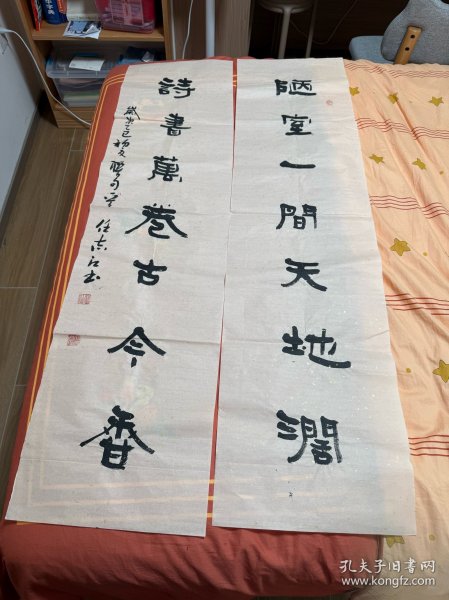 陋室一間天地濶
詩書萬卷古今香
任志江书
孔夫子旧书网
www.kongfz.com